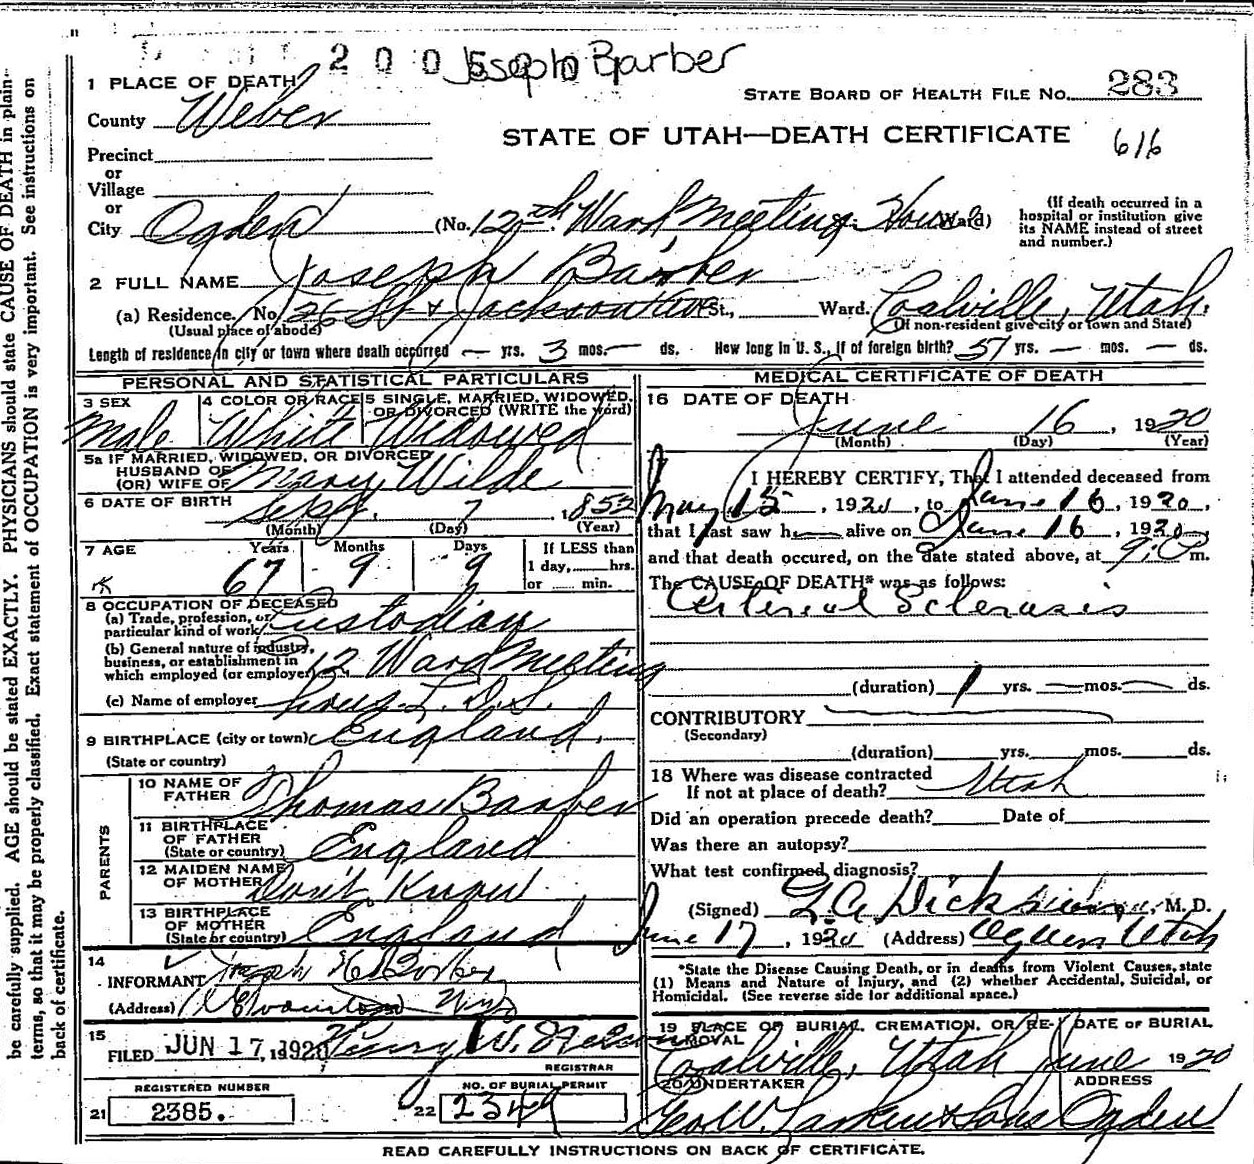 200500
Joseph Barber
1 PLACE OF DEATH
STATE BOARD OF HEALTH FILE No. 283
County Weber
STATE OF UTAH—DEATH CERTIFICATE 616
Precinct
or
Village
or
City Ogden (No. 12th Ward Meeting House St. Ward)
(If death occurred in a hospital or institution give its NAME instead of street and number.)
2 FULL NAME Joseph Barber
(a) Residence. No. 26 St & Jackson Ave St., Ward. Coalville, Utah.
(Usual place of abode) (If non-resident give city or town and State)
Length of residence in city or town where death occurred — yrs. 3 mos. — ds. How long in U. S., if of foreign birth? 51 yrs. — mos. — ds.
PERSONAL AND STATISTICAL PARTICULARS
3 SEX Male
4 COLOR OR RACE White
5 SINGLE, MARRIED, WIDOWED, OR DIVORCED (WRITE the word) Widowed
5a IF MARRIED, WIDOWED, OR DIVORCED
HUSBAND OF
(OR) WIFE OF Mary Wilde
6 DATE OF BIRTH Sept. 7 1852
(Month) (Day) (Year)
7 AGE Years Months Days If LESS than
67 9 9 1 day, hrs.
or min.
8 OCCUPATION OF DECEASED
(a) Trade, profession, or particular kind of work Custodian
(b) General nature of industry, business, or establishment in which employed (or employer) 12 Ward Meeting
(c) Name of employer House L.D.S.
9 BIRTHPLACE (city or town) England.
(State or country)
PARENTS
10 NAME OF FATHER Thomas Barber
11 BIRTHPLACE OF FATHER (State or country) England
12 MAIDEN NAME OF MOTHER Don't Know
13 BIRTHPLACE OF MOTHER (State or country) England
14
INFORMANT Joseph H Barber
(Address) Evanston Wyo
15
FILED JUN 17, 1920 Henry W. Nelson
REGISTRAR
REGISTERED NUMBER
21 2385.
NO. OF BURIAL PERMIT
22 2349
MEDICAL CERTIFICATE OF DEATH
16 DATE OF DEATH
June 16, 1920
(Month) (Day) (Year)
I HEREBY CERTIFY, That I attended deceased from
May 15, 1920, to June 16, 1920,
that I last saw h— alive on June 16, 1920,
and that death occured, on the date stated above, at m.
The CAUSE OF DEATH* was as follows:
Arterial Sclerosis
(duration) 1 yrs. — mos. — ds.
CONTRIBUTORY
(Secondary)
(duration) yrs. mos. ds.
18 Where was disease contracted
If not at place of death? Utah
Did an operation precede death? Date of
Was there an autopsy?
What test confirmed diagnosis?
(Signed) Dickson, M. D.
June 17, 1920 (Address) Ogden Utah
*State the Disease Causing Death, or in deaths from Violent Causes, state
(1) Means and Nature of Injury, and (2) whether Accidental, Suicidal, or
Homicidal. (See reverse side for additional space.)
19 PLACE OF BURIAL, CREMATION, OR REMOVAL DATE OF BURIAL
Coalville, Utah June 1920
20 UNDERTAKER ADDRESS
Geo W. Larkin & Sons Ogden
READ CAREFULLY INSTRUCTIONS ON BACK OF CERTIFICATE.
be carefully supplied. AGE should be stated EXACTLY. PHYSICIANS should state CAUSE OF DEATH in plain
terms, so that it may be properly classified. Exact statement of OCCUPATION is very important. See instructions on
back of certificate.